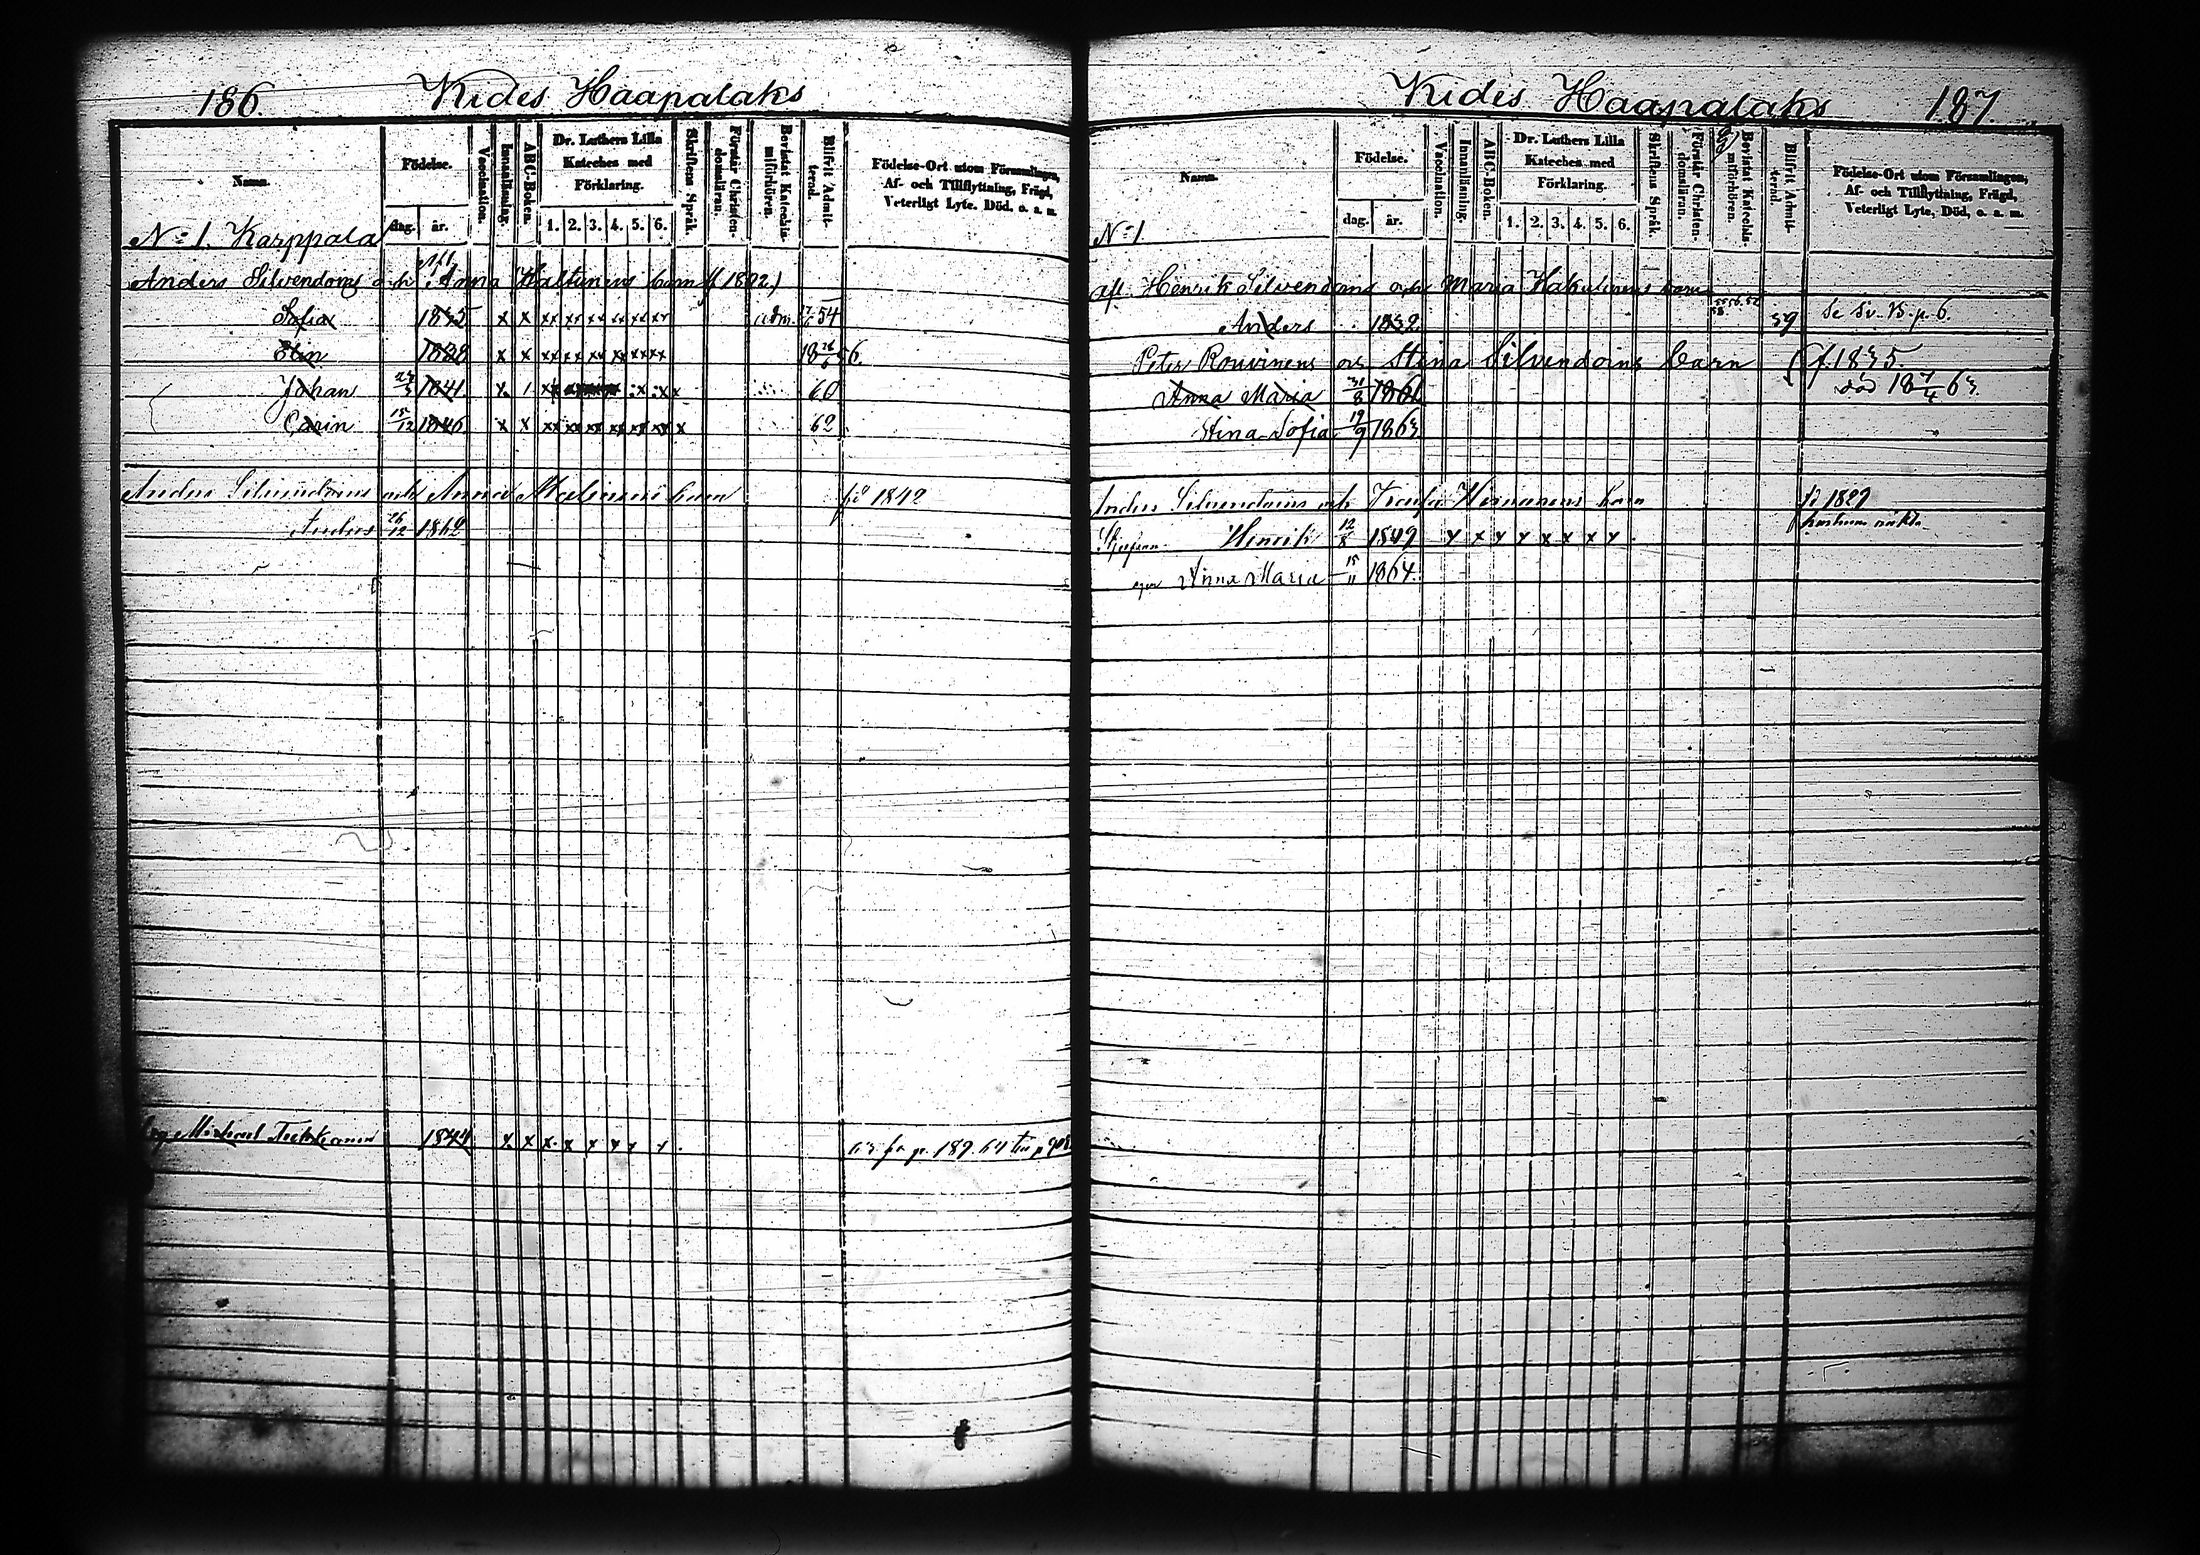 186. Kides Haapalaks
Namn. Födelse. Vaccination. Innanläsning. ABC-Boken. Dr. Luthers Lilla Kateches med Förklaring. Skriftens Språk. Förstår Christen-domsläran. Bevistat Katechis-miförhören. Blifvit Admit-terad. Födelse-Ort utom Församlingen, Af- och Tillflyttning, Frägd, Veterligt Lyte. Död, o. a. m.
dag. år. 1. 2. 3. 4. 5. 6.
No 1. Karppala
Anders Silvendoins och Anna barn (f 1802)
Sofia 1835 x x xx xx xx xx xx xx adm. 54
Elin 1838 x x xx xx xx xx xx xx 56.
Johan 1841. x 1 60
Carin 15/12 1846 x x xx xx xx xx xx xx x 62
Anders Silvendoins och Anna barn fö 1842
Anders 26/12 1862
Michael 1844 x x x x x x x x 63 fr p. 189. 64 till p
Kides Haapalaks 187.
Namn. Födelse. Vaccination. Innanläsning. ABC-Boken. Dr. Luthers Lilla Kateches med Förklaring. Skriftens Språk. Förstår Christen-domsläran. Bevistat Katechis-miförhören. Blifvit Admit-terad. Födelse-Ort utom Församlingen, Af- och Tillflyttning, Frägd, Veterligt Lyte, Död, o. a. m.
dag. år. 1. 2. 3. 4. 5. 6.
No 1
afl. Henrik Silvendoins och Maria Hakulinens barn
Anders 1832 59 Se Sv. B. p. 6.
Peter Rouvinens o. Stina Silvendoins barn f. 1835.
Anna Maria 31/8 1861 död 18 7/4 63.
Stina Sofia 19/9 1863
Anders Silvendoins och barn fö 1829
Henrik 12/8 1849 x x x x x x x x
Anna Maria 15/11 1864.